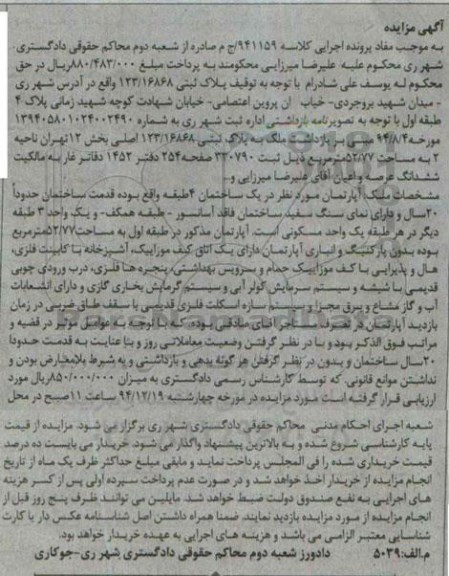 آگهی مزایده
به موجب مفاد پرونده اجرایی کلاسه ۹۴۱۱۵۹/ج م صادره از شعبه دوم محاکم حقوقی دادگستری
شهر ری محکوم علیه علیرضا میرزایی محکومند به پرداخت مبلغ ۸۸۰/۴۸۳/۰۰۰ریال در حق
محکوم له یوسف علی شادرام با توجه به توقیف پلاک ثبتی ۱۲۳/۱۶۸۶۸ واقع در آدرس شهر ری
- میدان شهید بروجردی- خیابان پروین اعتصامی- خیابان شهادت کوچه شهید زمانی پلاک ۴
طبقه اول با توجه به تصویرنامه بازداشتی اداره ثبت شهر ری به شماره ۱۳۹۴۰۵۸۰۱۰۲۴۰۰۲۴۹۰
مورخه ۹۴/۸/۴ مبنی بر بازداشت ملک به پلاک ثبتی ۱۲۳/۱۶۸۶۸ اصلی بخش ۱۲تهران ناحیه
۲ به مساحت ۵۲/۷۷مترمربع ذیل ثبت ۳۳۰۷۹۰ صفحه۲۵۴ دفتر ۱۴۵۲ دفاتر غار به مالکیت
ششدانگ عرصه و اعیان آقای علیرضا میرزایی و...
مشخصات ملک: آپارتمان مورد نظر در یک ساختمان ۴طبقه واقع بوده قدمت ساختمان حدوداً
۲۰سال و دارای نمای سنگ سفید ساختمان فاقد آسانسور - طبقه همکف- و یک واحد ۳ طبقه
دیگر در هر طبقه یک واحد مسکونی است. آپارتمان مذکور در طبقه اول به مساحت۵۲/۷۷مترمربع
بوده بدون پارکینگ و انباری آپارتمان دارای یک اتاق کف موزاییک، آشپزخانه با کابینت فلزی،
هال و پذیرایی با کف موزاییک حمام و سرویس بهداشتی، پنجره ها فلزی، درب ورودی چوبی
قدیمی با شیشه و سیستم سرمایش کولر آبی و سیستم گرمایش بخاری گازی و دارای انشعابات
آب و گاز مشاع و برق مجزا و سیستم سازه اسکلت فلزی قدیمی با سقف طاق ضربی در زمان
بازدید آپارتمان در تصرف مستاجر آقای صادقی بوده، که با توجه به عوامل موثر در قضیه و
مراتب فوق الذکر بود و با در نظر گرفتن وضعیت معاملاتی روز و بنا عنایت به قدمت حدودا
۲۰سال ساختمان و بدون در نظر گرفتن هر گونه بدهی و بازداشتی و به شرط بلامعارض بودن و
نداشتن موانع قانونی، که توسط کارشناس رسمی دادگستری به میزان ۸۵۰/۰۰۰/۰۰۰ریال مورد
ارزیابی قرار گرفته است مورد مزایده در مورخه چهارشنبه ۹۴/۱۲/۱۹ ساعت ۱۱صبح در محل
شعبه اجرای احکام مدنی محاکم حقوقی دادگستری شهر ری برگزار می شود. مزایده از قیمت
پایه کارشناسی شروع شده و به بالاترین پیشنهاد واگذار می شود. خریدار می بایست ده درصد
قیمت خریداری شده را فی المجلس پرداخت نماید و مابقی مبلغ حداکثر ظرف یک ماه از تاریخ
انجام مزایده از خریدار اخذ خواهد شد و در صورت عدم پرداخت سپرده اولی پس از کسر هزینه
های اجرایی به نفع صندوق دولت ضبط خواهد شد. مایلین می توانند ظرف پنج روز قبل از
انجام مزایده از مورد مزایده بازدید نمایند. ضمنا همراه داشتن اصل شناسنامه عکس دار یا کارت
شناسایی معتبر الزامی می باشد و هزینه های اجرایی به عهده خریدار خواهد بود.
م.الف:۵۰۳۹ دادورز شعبه دوم محاکم حقوقی دادگستری شهر ری-جوکاری